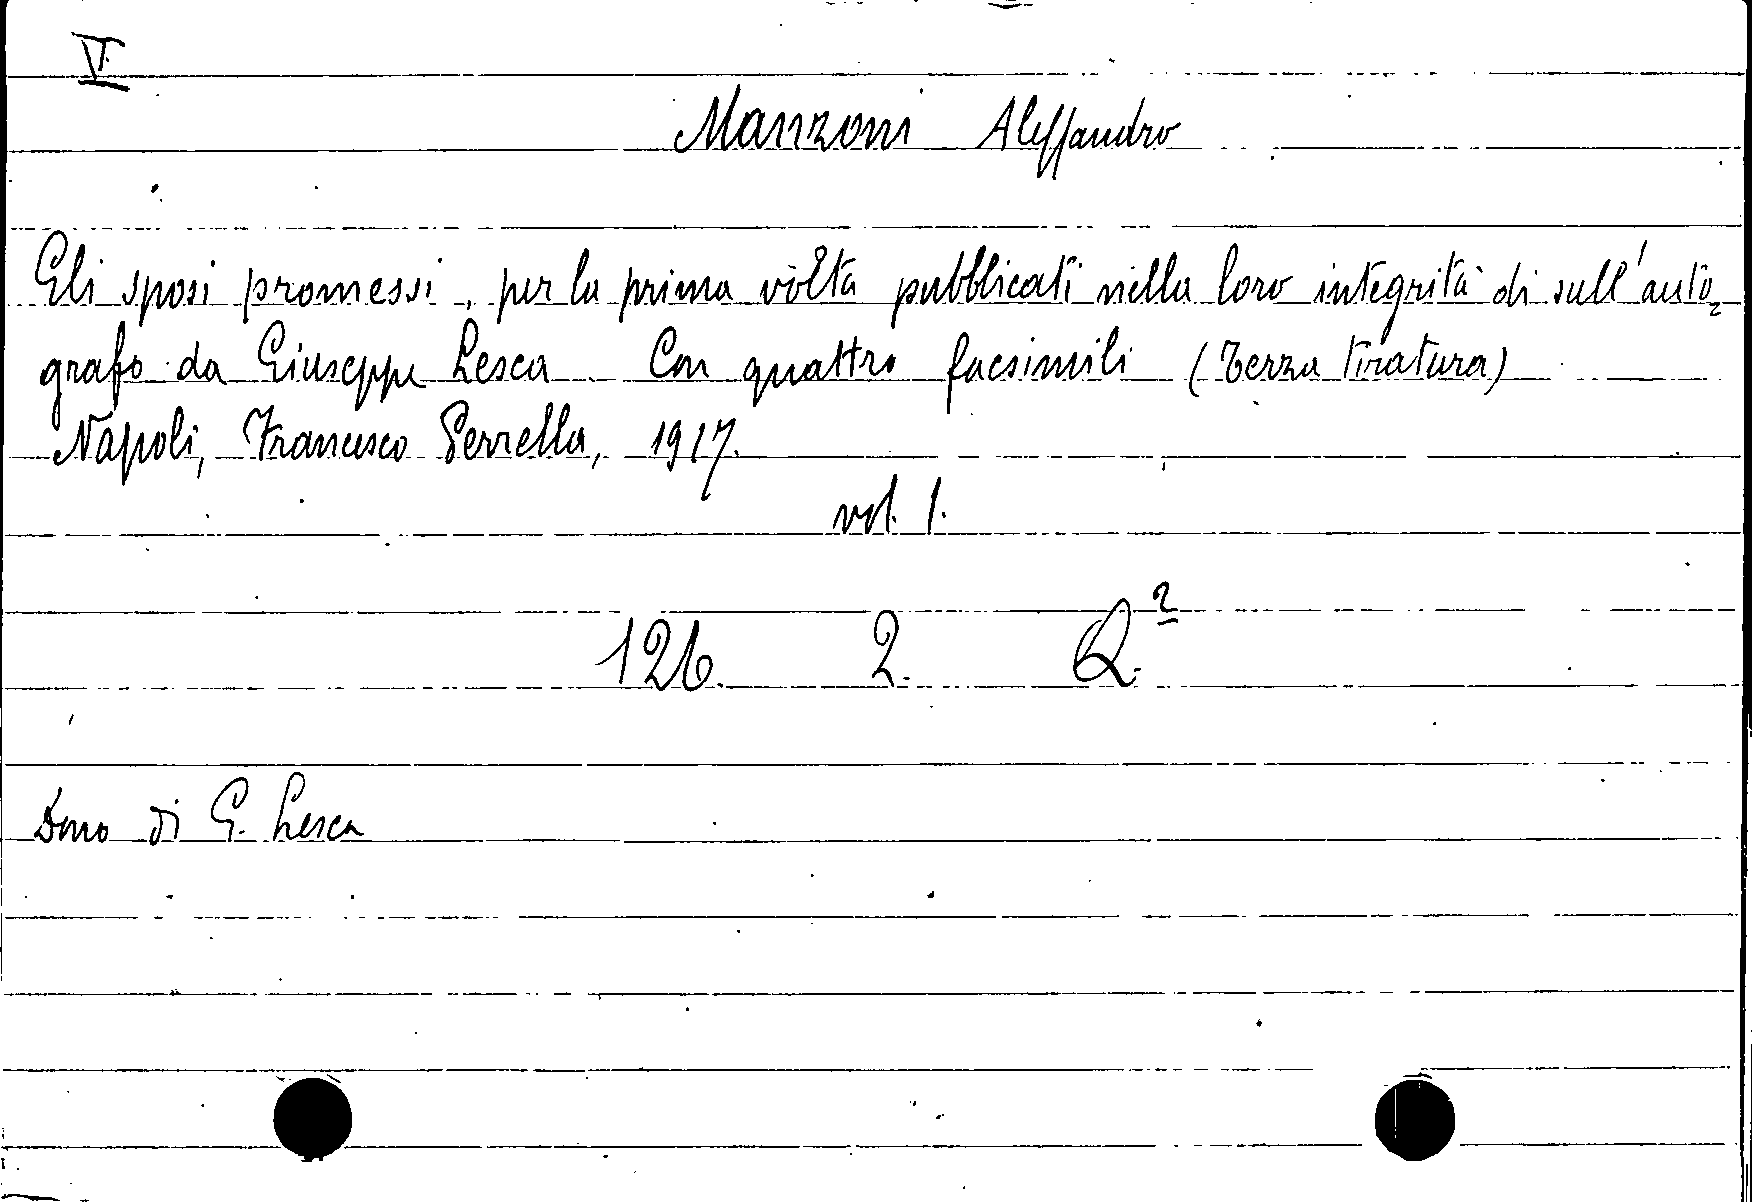 V.
Manzoni Alessandro
Gli sposi promessi, per la prima volta pubblicati nella loro integrità di sull'auto=
grafo da Giuseppe Lesca. Con quattro facsimili (Terza tiratura)
Napoli, Francesco Perrella, 1917.
vol. 1.
126. 2. Q.²
Dono di G. Lesca